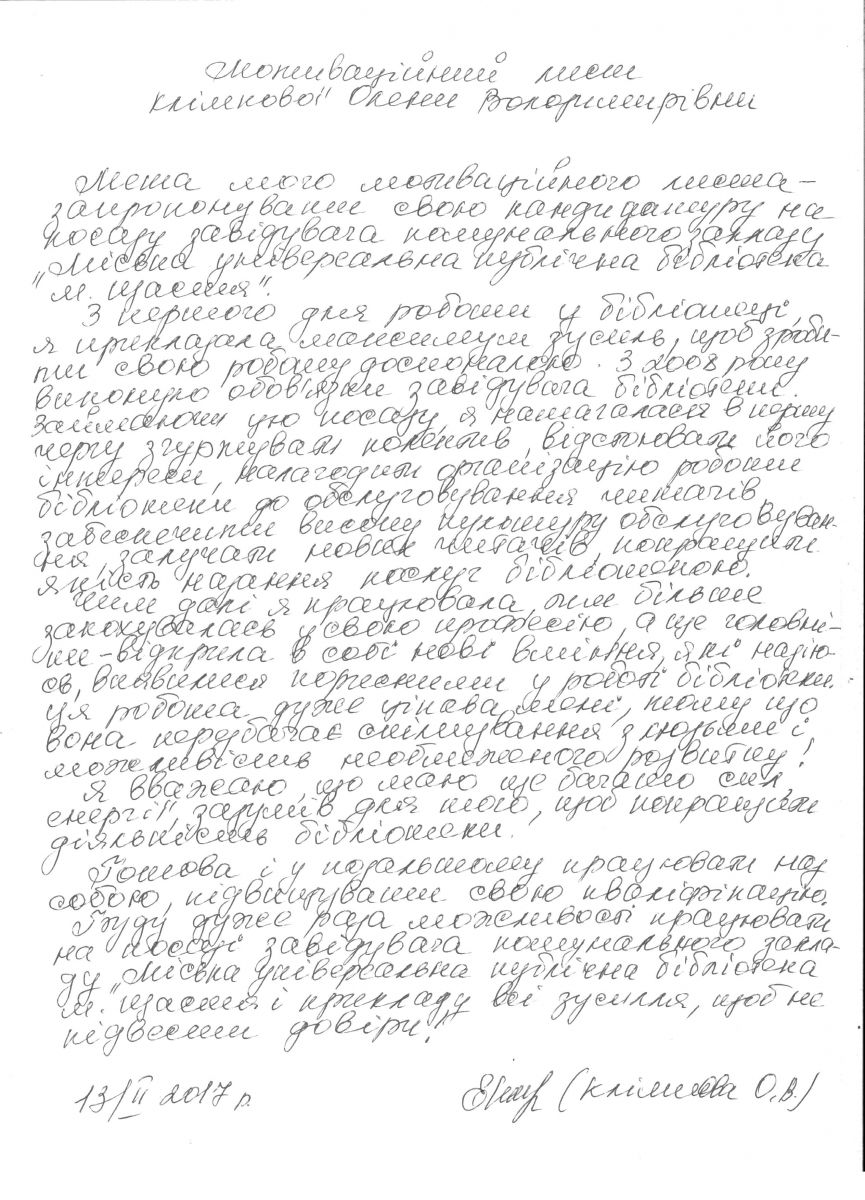 Мотиваційний лист
Клімкової Олени Володимирівни
Мета мого мотиваційного листа –
запропонувати свою кандидатуру на
посаду завідувача комунального закладу
"Міська універсальна публічна бібліотека
м. Щастя".
З першого дня роботи у бібліотеці,
я прикладала максимум зусиль, щоб зроби-
ти свою роботу досконалою. З 2008 року
виконую обов'язки завідувача бібліотеки.
Займаючи цю посаду, я намагалася в першу
чергу згуртувати колектив, відстоювати його
інтереси, налагодити організацію роботи
бібліотеки до обслуговування читачів,
забезпечити високу культуру обслуговуван-
ня, залучати нових читачів, покращити
якість надання послуг бібліотекою.
Чим далі я працювала, тим більше
закохувалась у свою професію, а ще головні-
ше – відкрила в собі нові вміння, які, надію-
сь, виявилися корисними у роботі бібліотеки.
Ця робота дуже цікава мені, тому що
вона передбачає спілкування з людьми і
можливість необмеженого розвитку!
Я вважаю, що маю ще багато сил,
енергії, задумів для того, щоб покращити
діяльність бібліотеки.
Готова і у подальшому працювати над
собою, підвищувати свою кваліфікацію.
Буду дуже рада можливості працювати
на посаді завідувача комунального закла-
ду "Міська універсальна публічна бібліотека
м. Щастя і прикладу всі зусилля, щоб не
підвести довіри!
13/II 2017 р. (Клімкова О.В.)